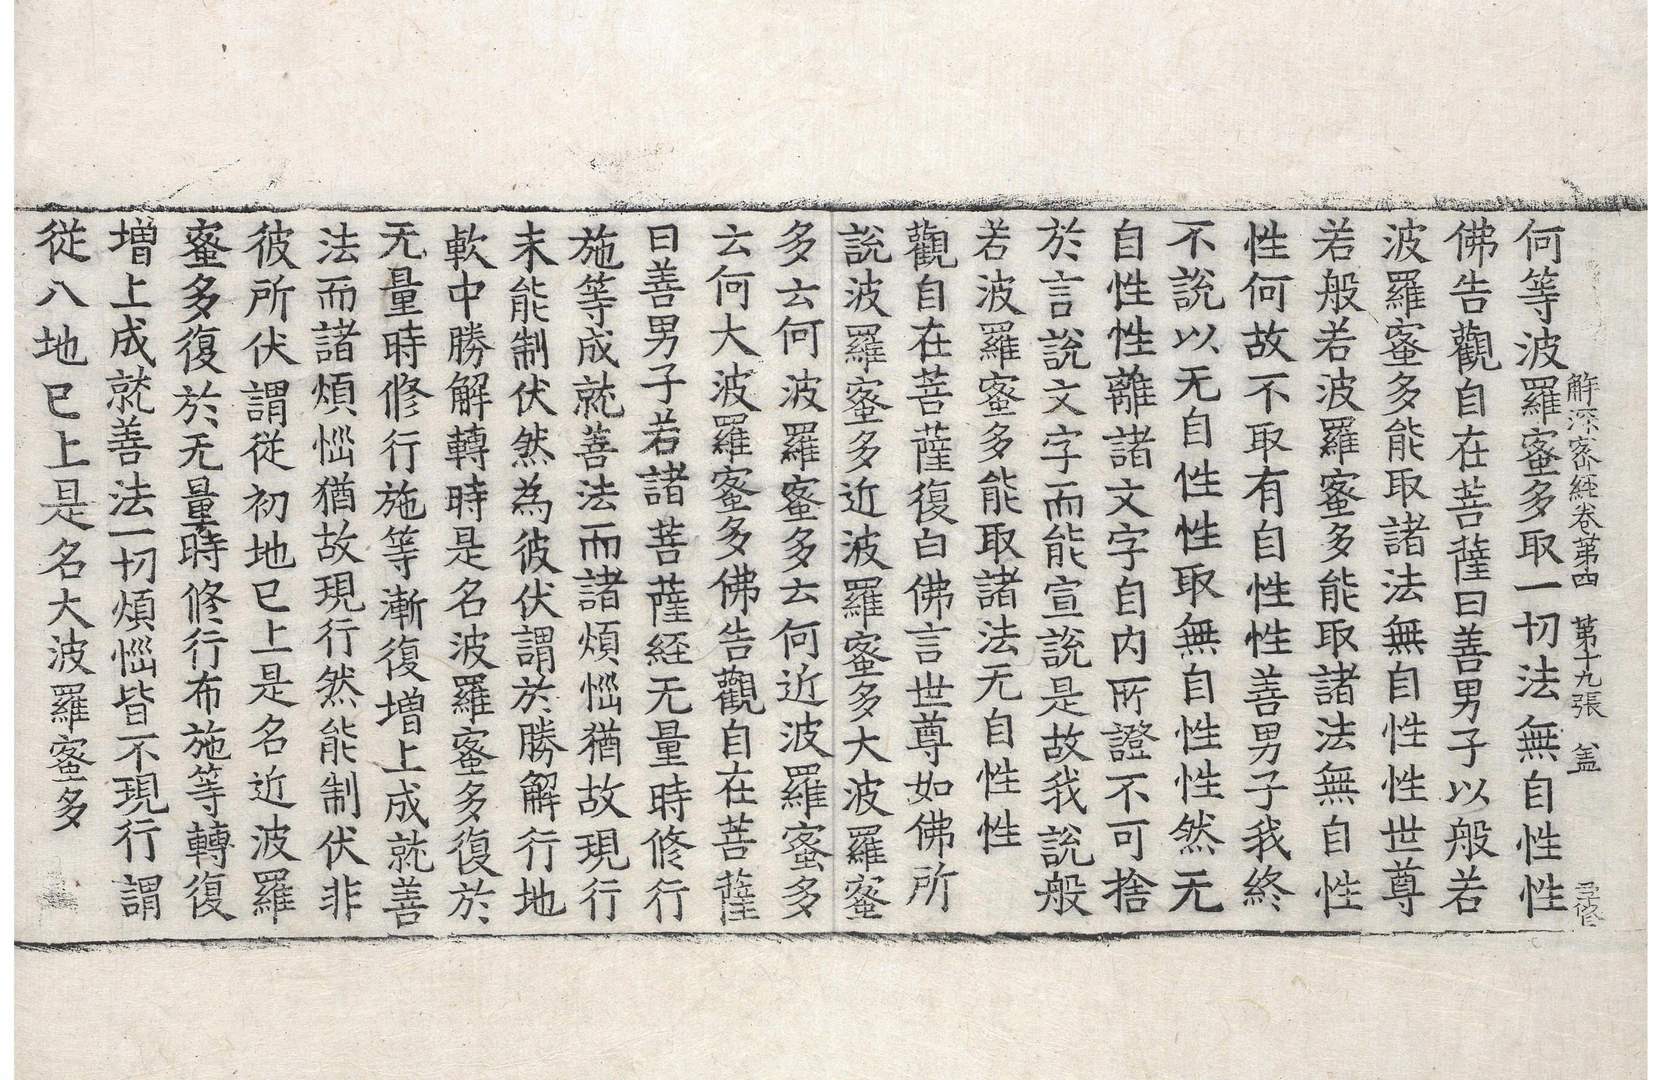 解深密經卷第四 第十九張 盖
何等波羅蜜多取一切法無自性性
佛告觀自在菩薩曰善男子以般若
波羅蜜多能取諸法無自性性世尊
若般若波羅蜜多能取諸法無自性
性何故不取有自性性善男子我終
不說以无自性性取無自性性然无
自性性離諸文字自内所證不可捨
於言說文字而能宣說是故我說般
若波羅蜜多能取諸法无自性性
觀自在菩薩復白佛言世尊如佛所
說波羅蜜多近波羅蜜多大波羅蜜
多云何波羅蜜多云何近波羅蜜多
云何大波羅蜜多佛告觀自在菩薩
曰善男子若諸菩薩經无量時修行
施等成就善法而諸煩惱猶故現行
未能制伏然為彼伏謂於勝解行地
軟中勝解轉時是名波羅蜜多復於
无量時修行施等漸復增上成就善
法而諸煩惱猶故現行然能制伏非
彼所伏謂從初地已上是名近波羅
蜜多復於无量時修行布施等轉復
增上成就善法一切煩惱皆不現行謂
從八地已上是名大波羅蜜多